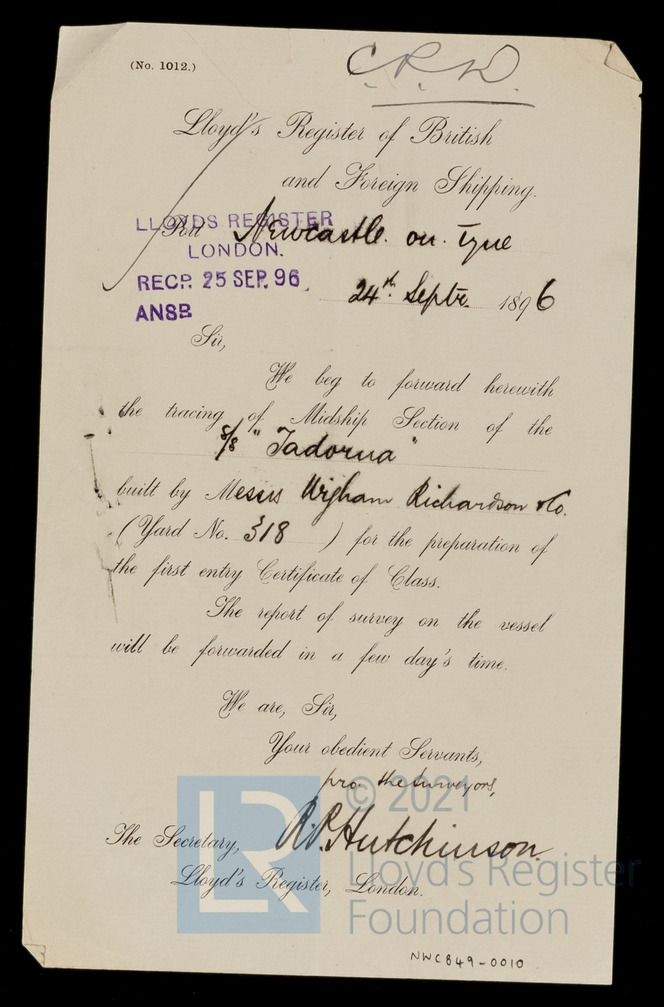 (No. 1012.)
C.R.D.
Lloyd's Register of British
and Foreign Shipping.
LLOYDS REGISTER
LONDON.
RECP. 25 SEP. 96
ANSB
Port Newcastle on Tyne
24th Septr. 1896
Sir,
We beg to forward herewith
the tracing of Midship Section of the
S/S "Tadorna"
built by Messrs Wigham Richardson & Co.
(Yard No. 318) for the preparation of
the first entry Certificate of Class.
The report of survey on the vessel
will be forwarded in a few day's time.
We are, Sir,
Your obedient Servants,
pro. the Surveyors,
R.P. Hutchinson.
The Secretary,
Lloyd's Register, London.
LR
© 2021
Lloyd's Register
Foundation
NWC849-0010